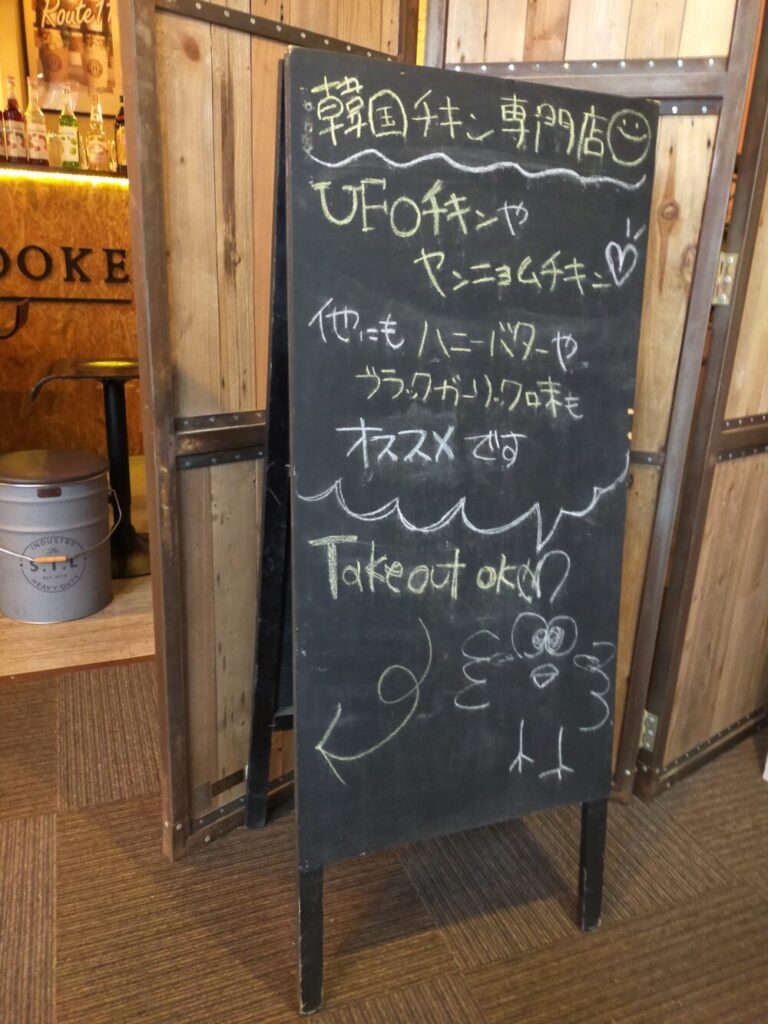 Route 1
OOKE
韓国チキン専門店
UFOチキンや
ヤンニョムチキン
他にも ハニーバターや
ブラックガーリック味も
オススメです
Take out ok
INDUSTRY
The
S.T.L
HEAVY-DUTY